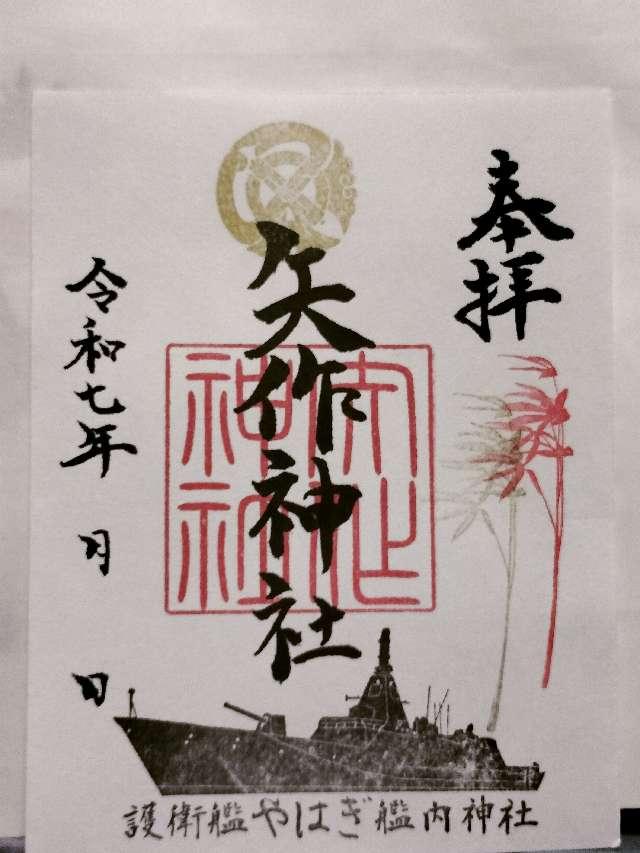 奉拝
矢作神社
矢作
神社
令和七年 月 日
護衛艦やはぎ艦内神社